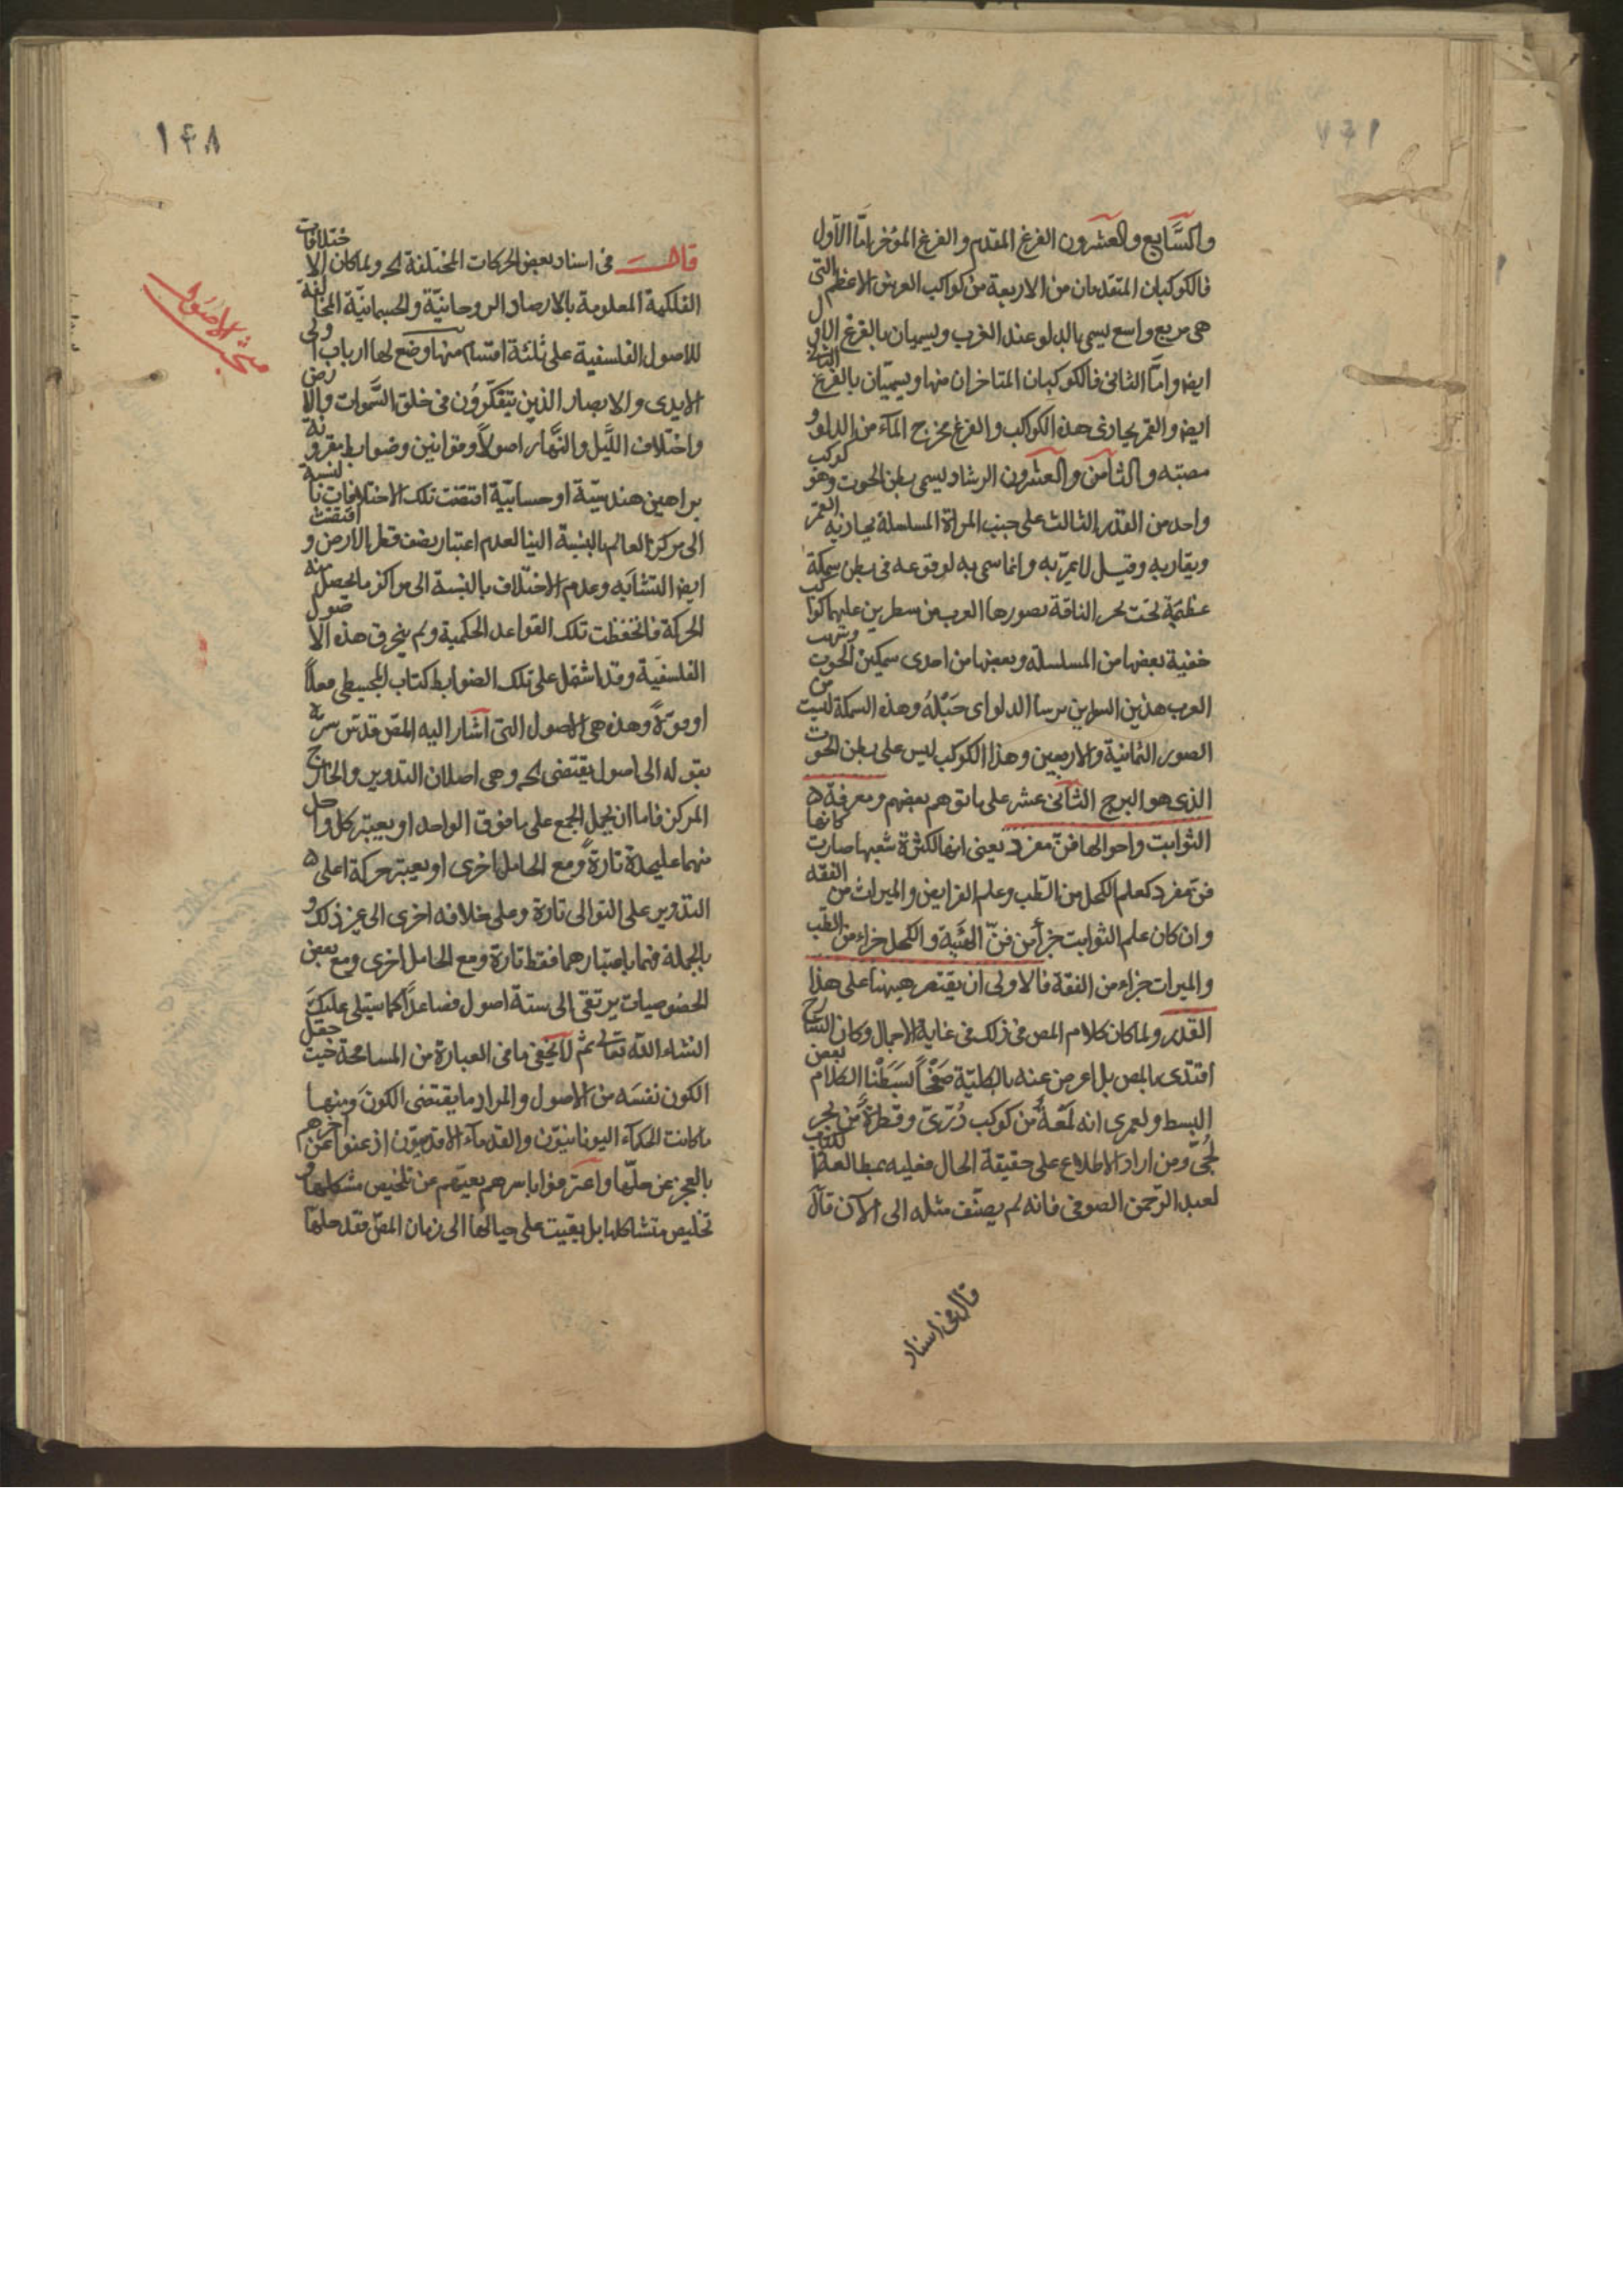 والسَّابع والعشرون الفرغ المقدم والفرغ المؤخر امّا الاول
فالكوكبان المتقدمان من الاربعة من كواكب الفرس الاعظم التى
هى مربع واسع يسمى بالدلو عند العرب ويسميان بالفرغ الاول
ايضا وامّا الثانى فالكوكبان المتاخران منها ويسميّان بالفرغ الثانى
ايضا والقمر يحاذى هذه الكواكب والفرغ مخرج المآء من الدلو و
مصبّه والثامن والعشرون الرشاد يسمى بطن الحوت وهو كوكب
واحد من القدر الثالث على جنب المراة المسلسلة يحاذيه القمر
ويقاربه وقيل لا يمرّ به وانما سمى به لوقوعه فى بطن سمكة
عظيمة تحت نحر الناقة يصورها العرب من سطرين عليهما كواكب
خفية بعضها من المسلسلة وبعضها من احدى سمكتين الحوت
العرب هذين السطرين رسنا الدلو اى حَبْلهُ وهذه السمكة ليست من
الصور الثمانية والاربعين وهذا الكوكب ليس على بطن الحوت
الذى هو البرج الثانى عشر على ما توهم بعضهم ومعرفة
الثوابت واحوالها فنّ مفرد يعنى انها لكثرة شعبها صارت كانها
فن مفرد كعلم الكحل من الطب وعلم الفرايض والميراث من الفقه
وان كان علم الثوابت جزأ من فنّ الهيئة والكحل جزاء من الطب
والميراث جزاء من الفقة فالاولى ان يقتصر هيهنا على هذا
القدر ولما كان كلام المص فى ذلك فى غاية الاجمال وكان الشارح
اقتدى بالمص بل اعرض عنه بالكلية صَفْحًا بَسَطْنا الكلام بعض
البسط ولعمرى انه لَمْعَةٌ من كوكب دُرّىّ وقطرةٌ من بحر
لُجّى ومن اراد الاطلاع على حقيقة الحال فعليه بمطالعة كتاب
لعبد الرّحمن الصوفى فانه لم يصنّف مثله الى الآن قال
قال فى اسناد
١٤٨
قال فى اسناد بعض الحركات المختلفة الخ ولما كان الاختلافات
الفلكية المعلومة بالارصاد الروحانيّة والجسمانيّة المخالفة
للاصول الفلسفية على ثلثة اقسام منها وضع لها ارباب اولى
الايدى والابصار الذين يتفكّرون فى خلق السَّموات والارض
واختلاف اللَّيل والنَّهار اصولاً وقوانين وضوابط مقرونة
براهين هندسيّة او حسابيّة اقتضت تلك الاختلافات بالنسبة
الى مركز العالم بالنسبة الينا لعدم اعتبار نصف قطر الارض واقتضت
ايضا التشابه وعدم الاختلاف بالنسبة الى مراكز ما يحصل منه
الحركة فانحفظت تلك القواعد الحكمية ولم ينخرق هذه الاصول
الفلسفيّة وقد اشتمل على تلك الضوابط كتاب المجسطى فعلاً
او قوةً وهذه هى الاصول التى اشار اليه المص قدّس سرّه
بقوله الى اصول يقتضى الخ وهى اصلان التدوير والخارج
المركز فاما ان يحمل الجمع على ما فوق الواحد او يعتبر كل واحد
منهما عليحدة تارةً ومع الحامل اخرى او يعتبر حركة اعلى
التدوير على التوالى تارة وعلى خلافه اخرى الى غير ذلك و
بالجملة فهما باعتبارهما فقط تارة ومع الحامل اخرى ومع بعض
الخصوصيات يرتقى الى ستة اصول فصاعدًا كما سيتلى عليك
انشاء اللّه تعالى ثم لا يخفى ما فى العبارة من المسامحة حيث جعل
الكون نفسَه من الاصول والمراد ما يقتضى الكونَ ومنها
ما كانت الحكمآء اليونانيّون والقدمآء الاقدميّون اذعنوا عن اخرهم
بالعجز عن حلّها واعترفوا باسرهم بعيّهم عن تلخيص مشكلها و
تخليص متشاكلها بل بقيت على حيالها الى زمان المص فقد حلّها
مبحث الاصول